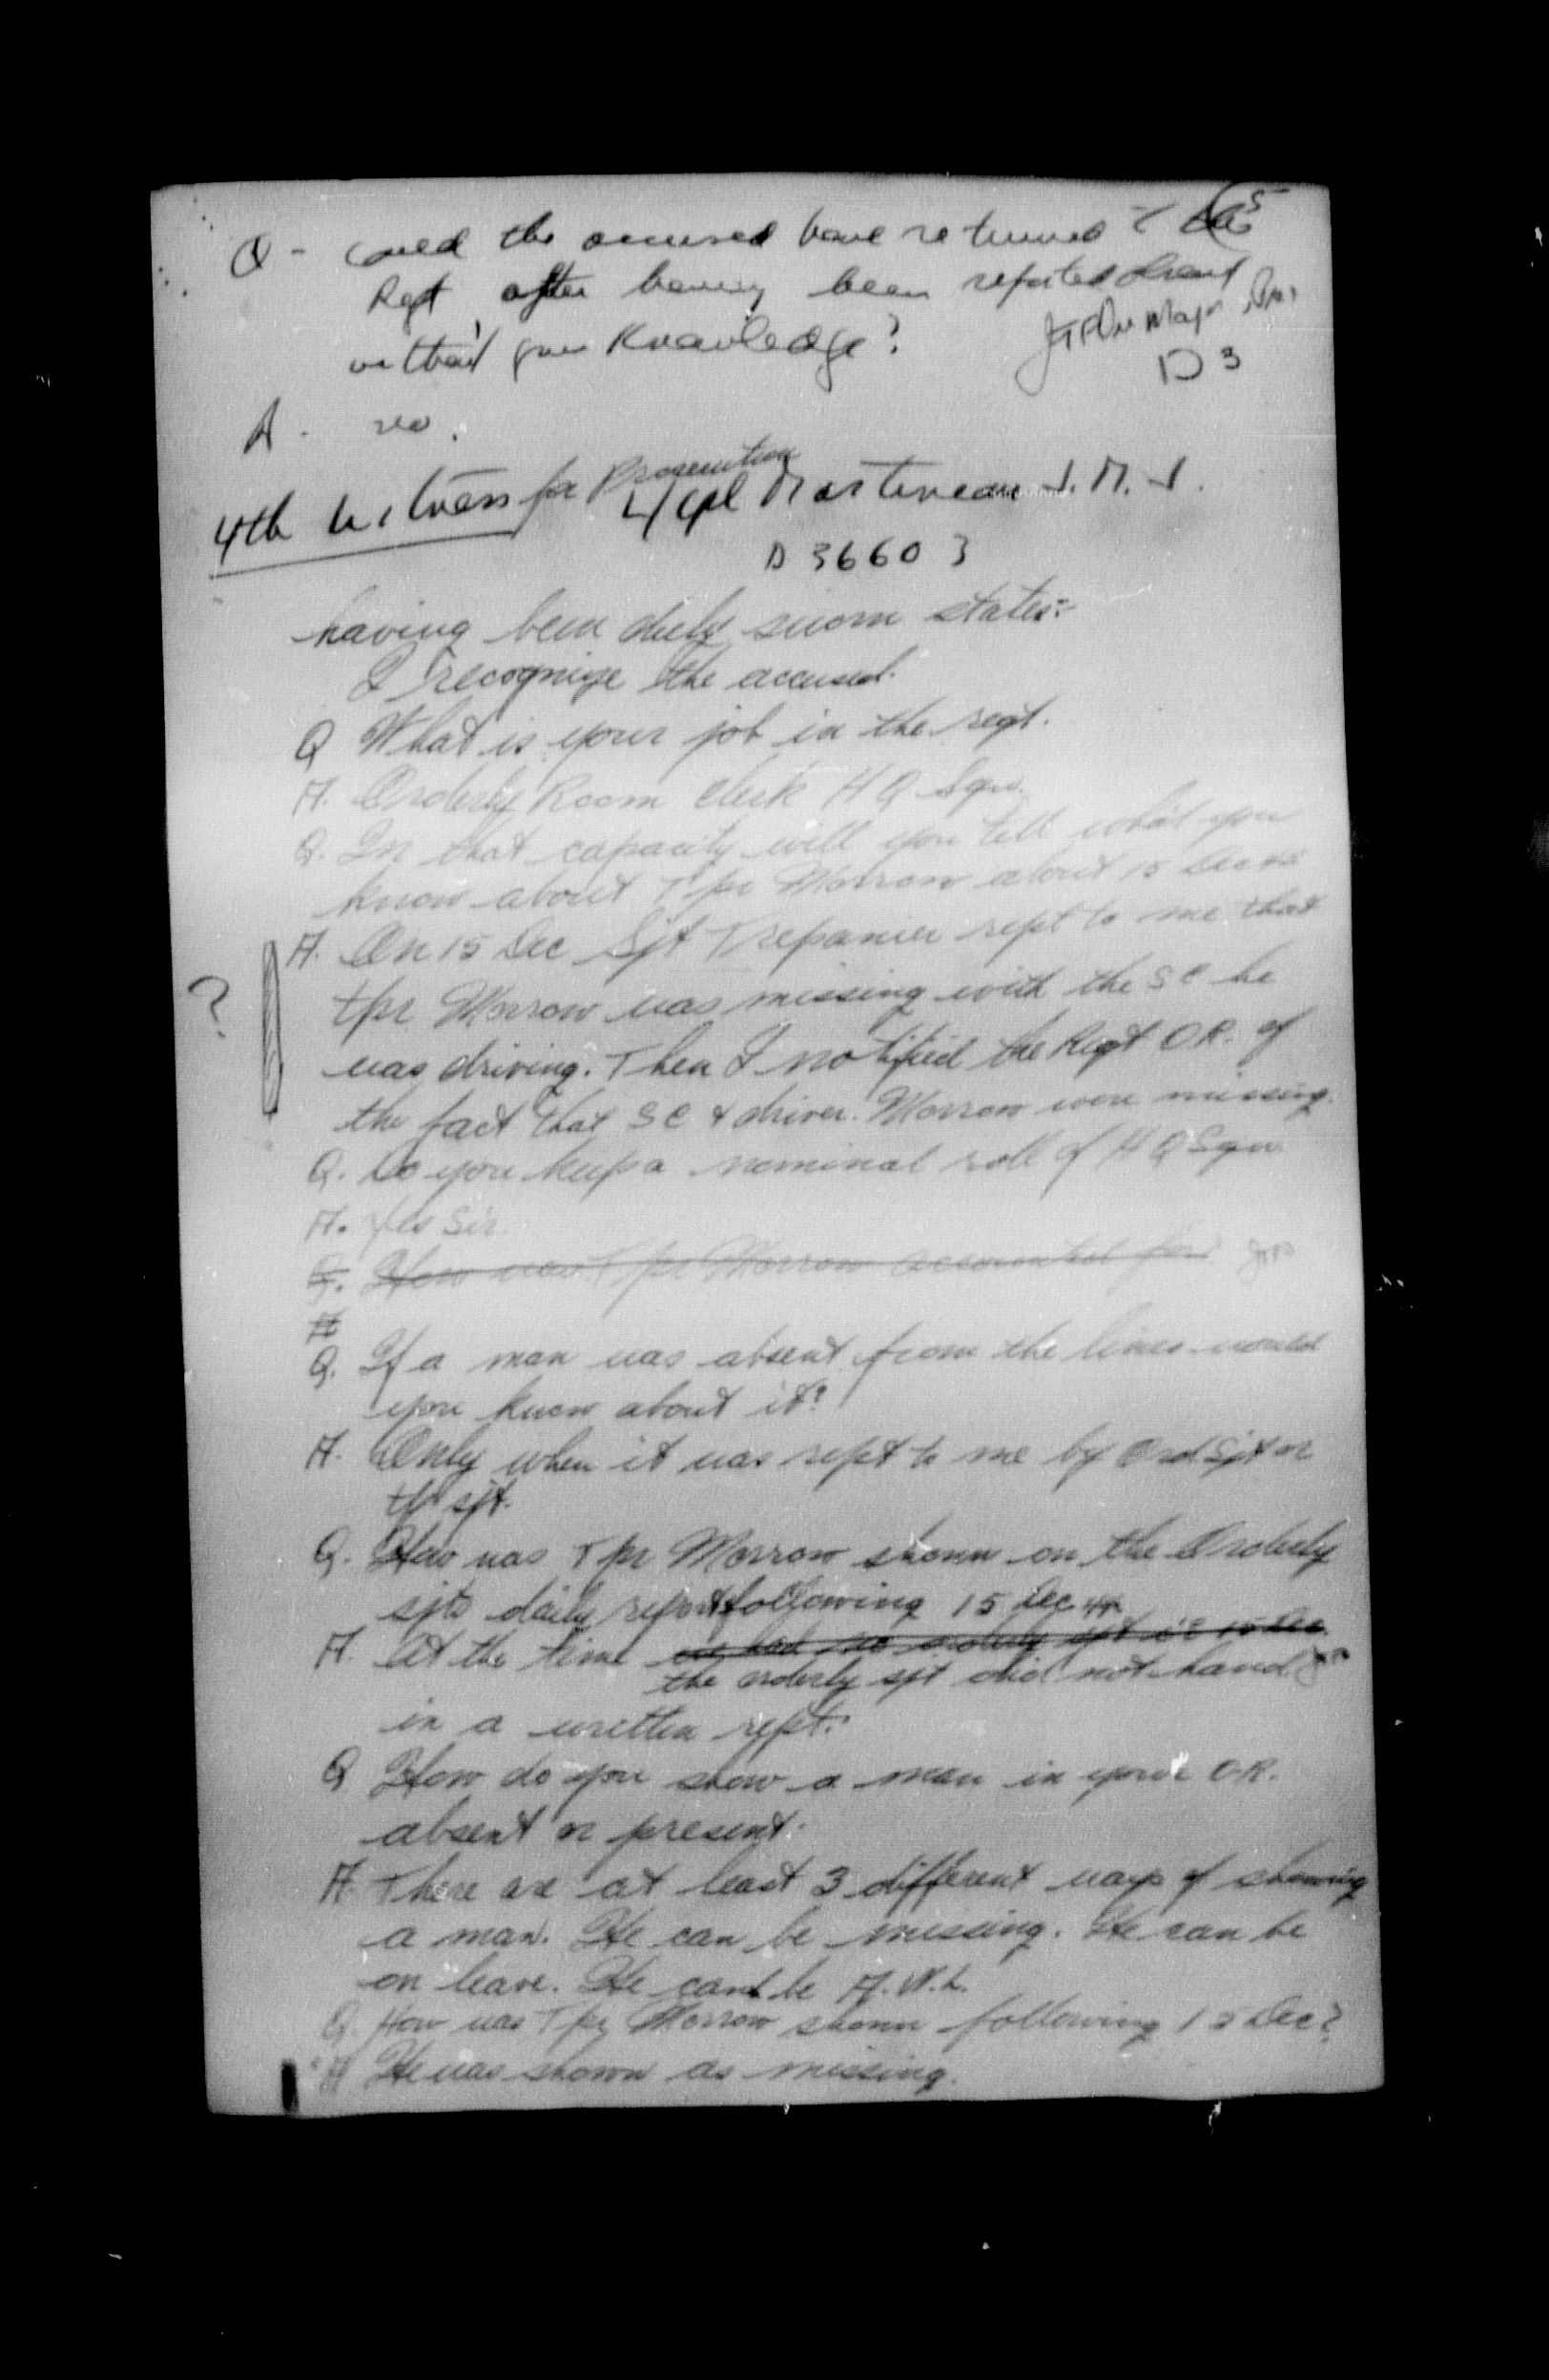 5
Q - could the accused have returned to the
Regt after having been reported absent
without your knowledge?
D 3
A - no.
4th Witness for Prosecution L/Cpl Martineau J. M. J.
D 36603
having been duly sworn states:-
I recognize the accused.
Q What is your job in the regt.
A. Orderly Room Clerk HQ Sqn.
Q. In that capacity will you tell what you
know about Tpr Morrow about 15 Dec
A. On 15 Dec Sjt Trepanier rept to me that
?
tpr Morrow was missing with the SC he
was driving. Then I notified the Regt O.R. of
the fact that SC & driver Morrow were missing.
Q. Do you keep a nominal roll of HQ Sqn
A. Yes Sir.
Q. How was Tpr Morrow accounted for
A
Q. If a man was absent from the lines would
you know about it?
A. Only when it was rept to me by Ord Sjt or
tp sjt.
Q. How was Tpr Morrow shown on the Orderly
sjts daily report following 15 Dec 44
A. At the time we had no orderly sjt
the orderly sjt did not hand
in a written rept.
Q How do you show a man in your O.R.
absent or present.
A. There are at least 3 different ways of showing
a man. He can be missing. He can be
on leave. He can be A.W.L.
Q. How was Tpr Morrow shown following 15 Dec?
A He was shown as missing.